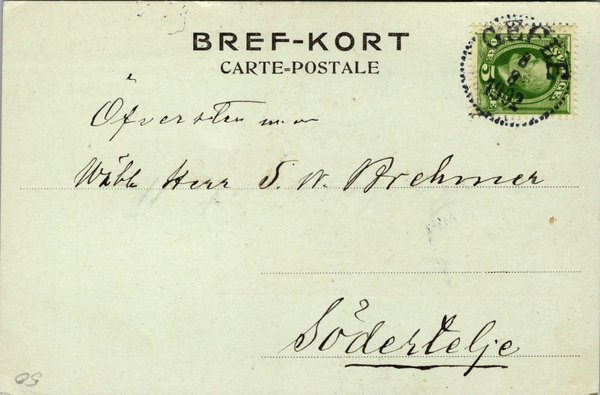 BREF-KORT
CARTE-POSTALE
GEFLE
8
8
1902
5
Öfversten m. m.
Wälb. Herr S. W. Brehmer
Södertelje
50